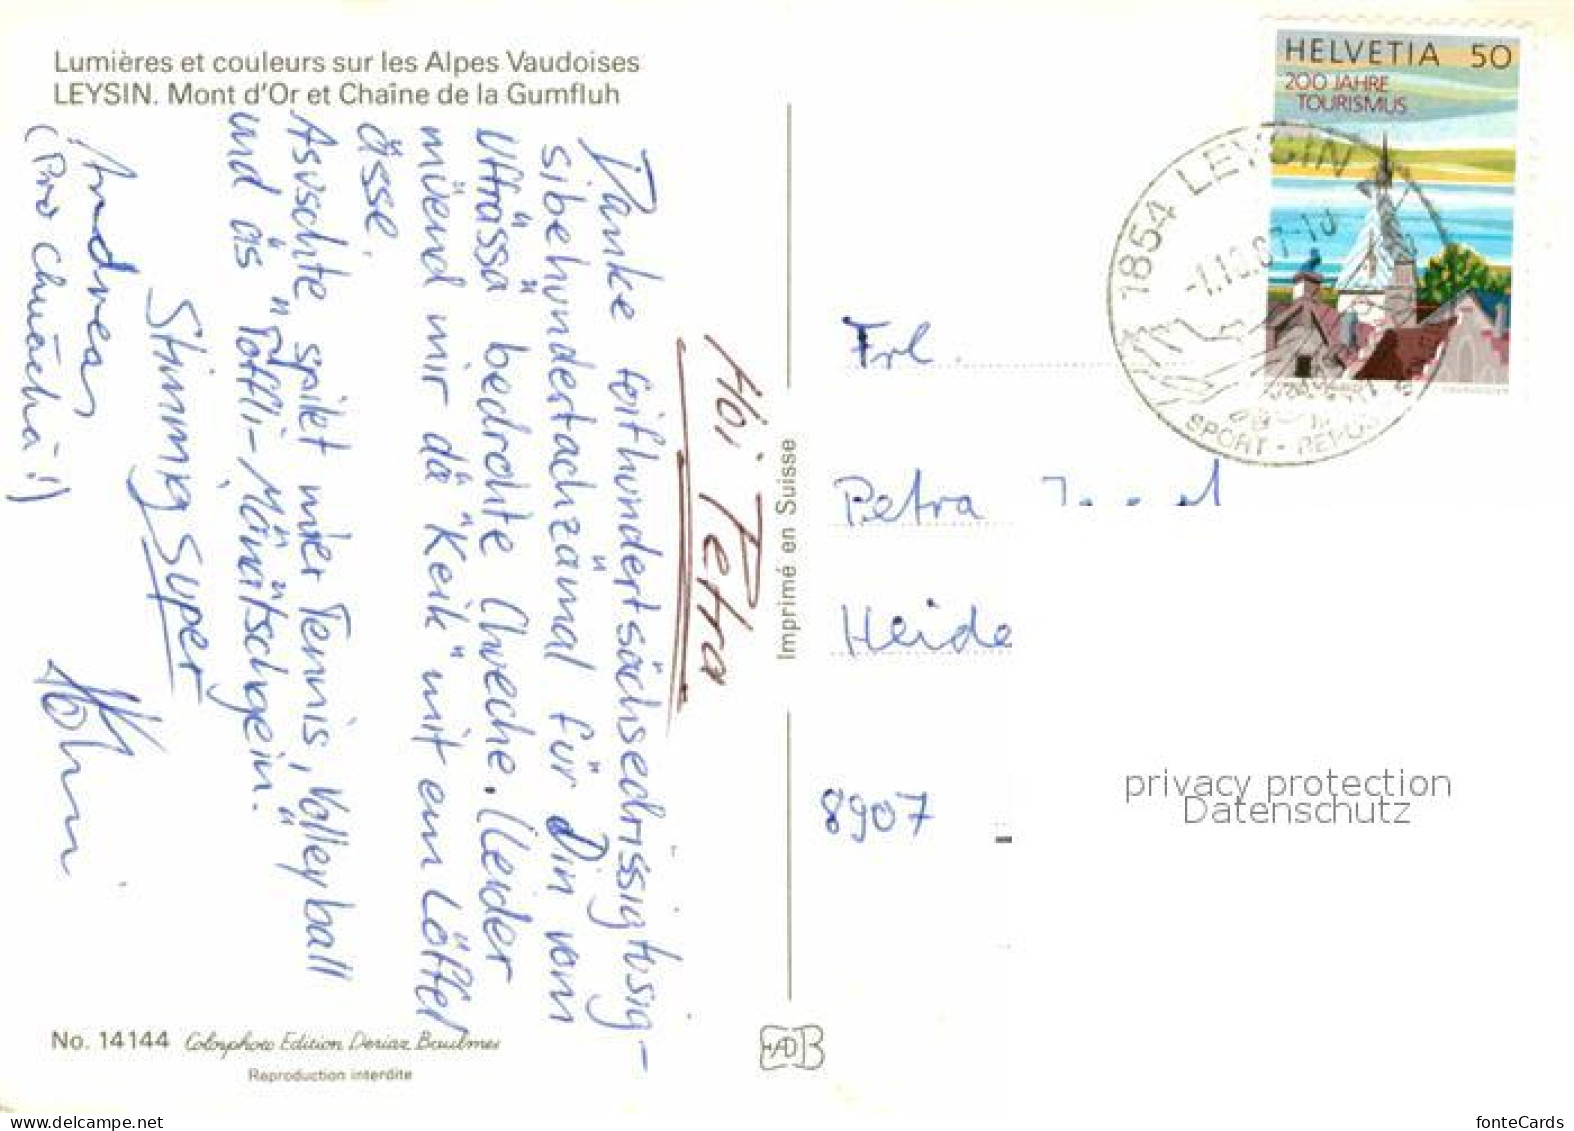 Lumières et couleurs sur les Alpes Vaudoises
LEYSIN. Mont d'Or et Chaîne de la Gumfluh
Hoi Petra
Danke foifhundertsächsedrissigtusig-
sibehundertachzämal für Din vom
Uffrässa bedrohte Chueche. (Leider
müend mir dä "Keik" mit em Löffel
ässe.
Asuschte spilet mier Tennis, Volleyball
und äs "Töffli-Mänätschgeim".
Stimmig super
Andreas
(Pro
HELVETIA 50
200 JAHRE
TOURISMUS
1854 LEYSIN
-1.10.87-18
SPORT - REPOS
Frl.
Petra
Heide
8907
Imprimé en Suisse
privacy protection
Datenschutz
No. 14144 Colorphoto Edition Deriaz Baulmes
Reproduction interdite
www.delcampe.net
fonteCards